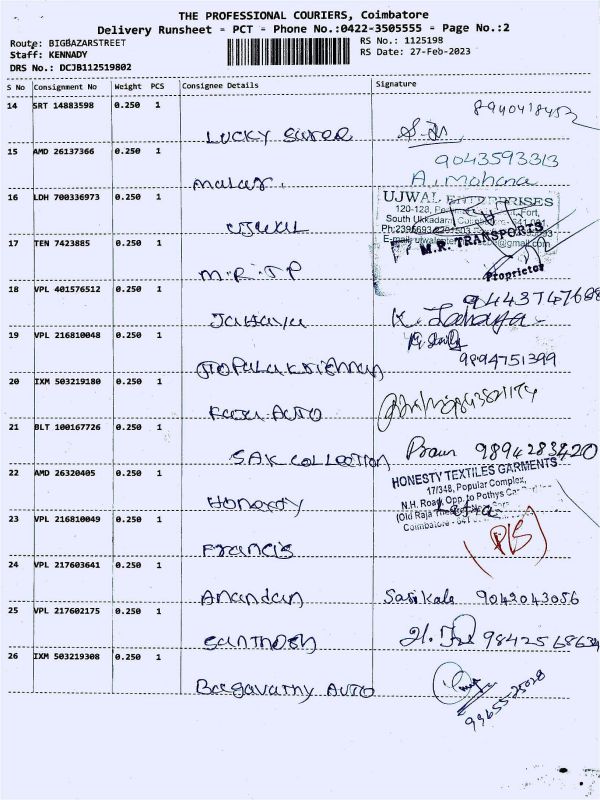 THE PROFESSIONAL COURIERS, Coimbatore
Delivery Runsheet = PCT = Phone No.:0422-3505555 = Page No.:2
Route: BIGBAZARSTREET
RS No.: 1125198
Staff: KENNADY
RS Date: 27-Feb-2023
DRS No.: DCJB112519802
S No Consignment No Weight PCS Consignee Details Signature
14 SRT 14883598 0.250 1
8940418452
LUCKY
15 AMD 26137366 0.250 1
9043593313
Malar. A. Mohana
16 LDH 700336973 0.250 1
UJWAL ENTERPRISES
120-128, Fort,
South Ukkadam, Coimbatore - 641 001
UJWAL
17 TEN 7423885 0.250 1
M.R. TRANSPORTS
Proprietor
M.R.T.P
18 VPL 401576512 0.250 1
9443747688
Jahaya K. Jahaya
19 VPL 216810048 0.250 1
9894751399
Gopalakrishnan
20 IXM 503219180 0.250 1
AUTO
21 BLT 100167726 0.250 1
SAK COLLECTION 9894283420
22 AMD 26320405 0.250 1
HONESTY TEXTILES GARMENTS
17/348, Popular Complex,
N.H. Road, Opp. to Pothys
(Old Raja
Coimbatore - 641
Honesty
23 VPL 216810049 0.250 1
Francis
24 VPL 217603641 0.250 1
Anandan Sasikala 9042043056
25 VPL 217602175 0.250 1
Santhosh 9842568634
26 IXM 503219308 0.250 1
Bagavathy AUTO
99655-25028